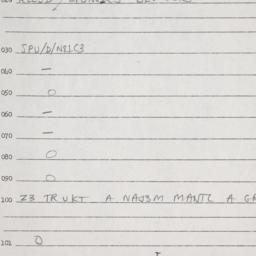 030 SPU/D/N21C3
040 —
050 O
060 —
070 —
080 O
090 O
100 Z3 TRUKT A NAJSM MANTL A
101 O